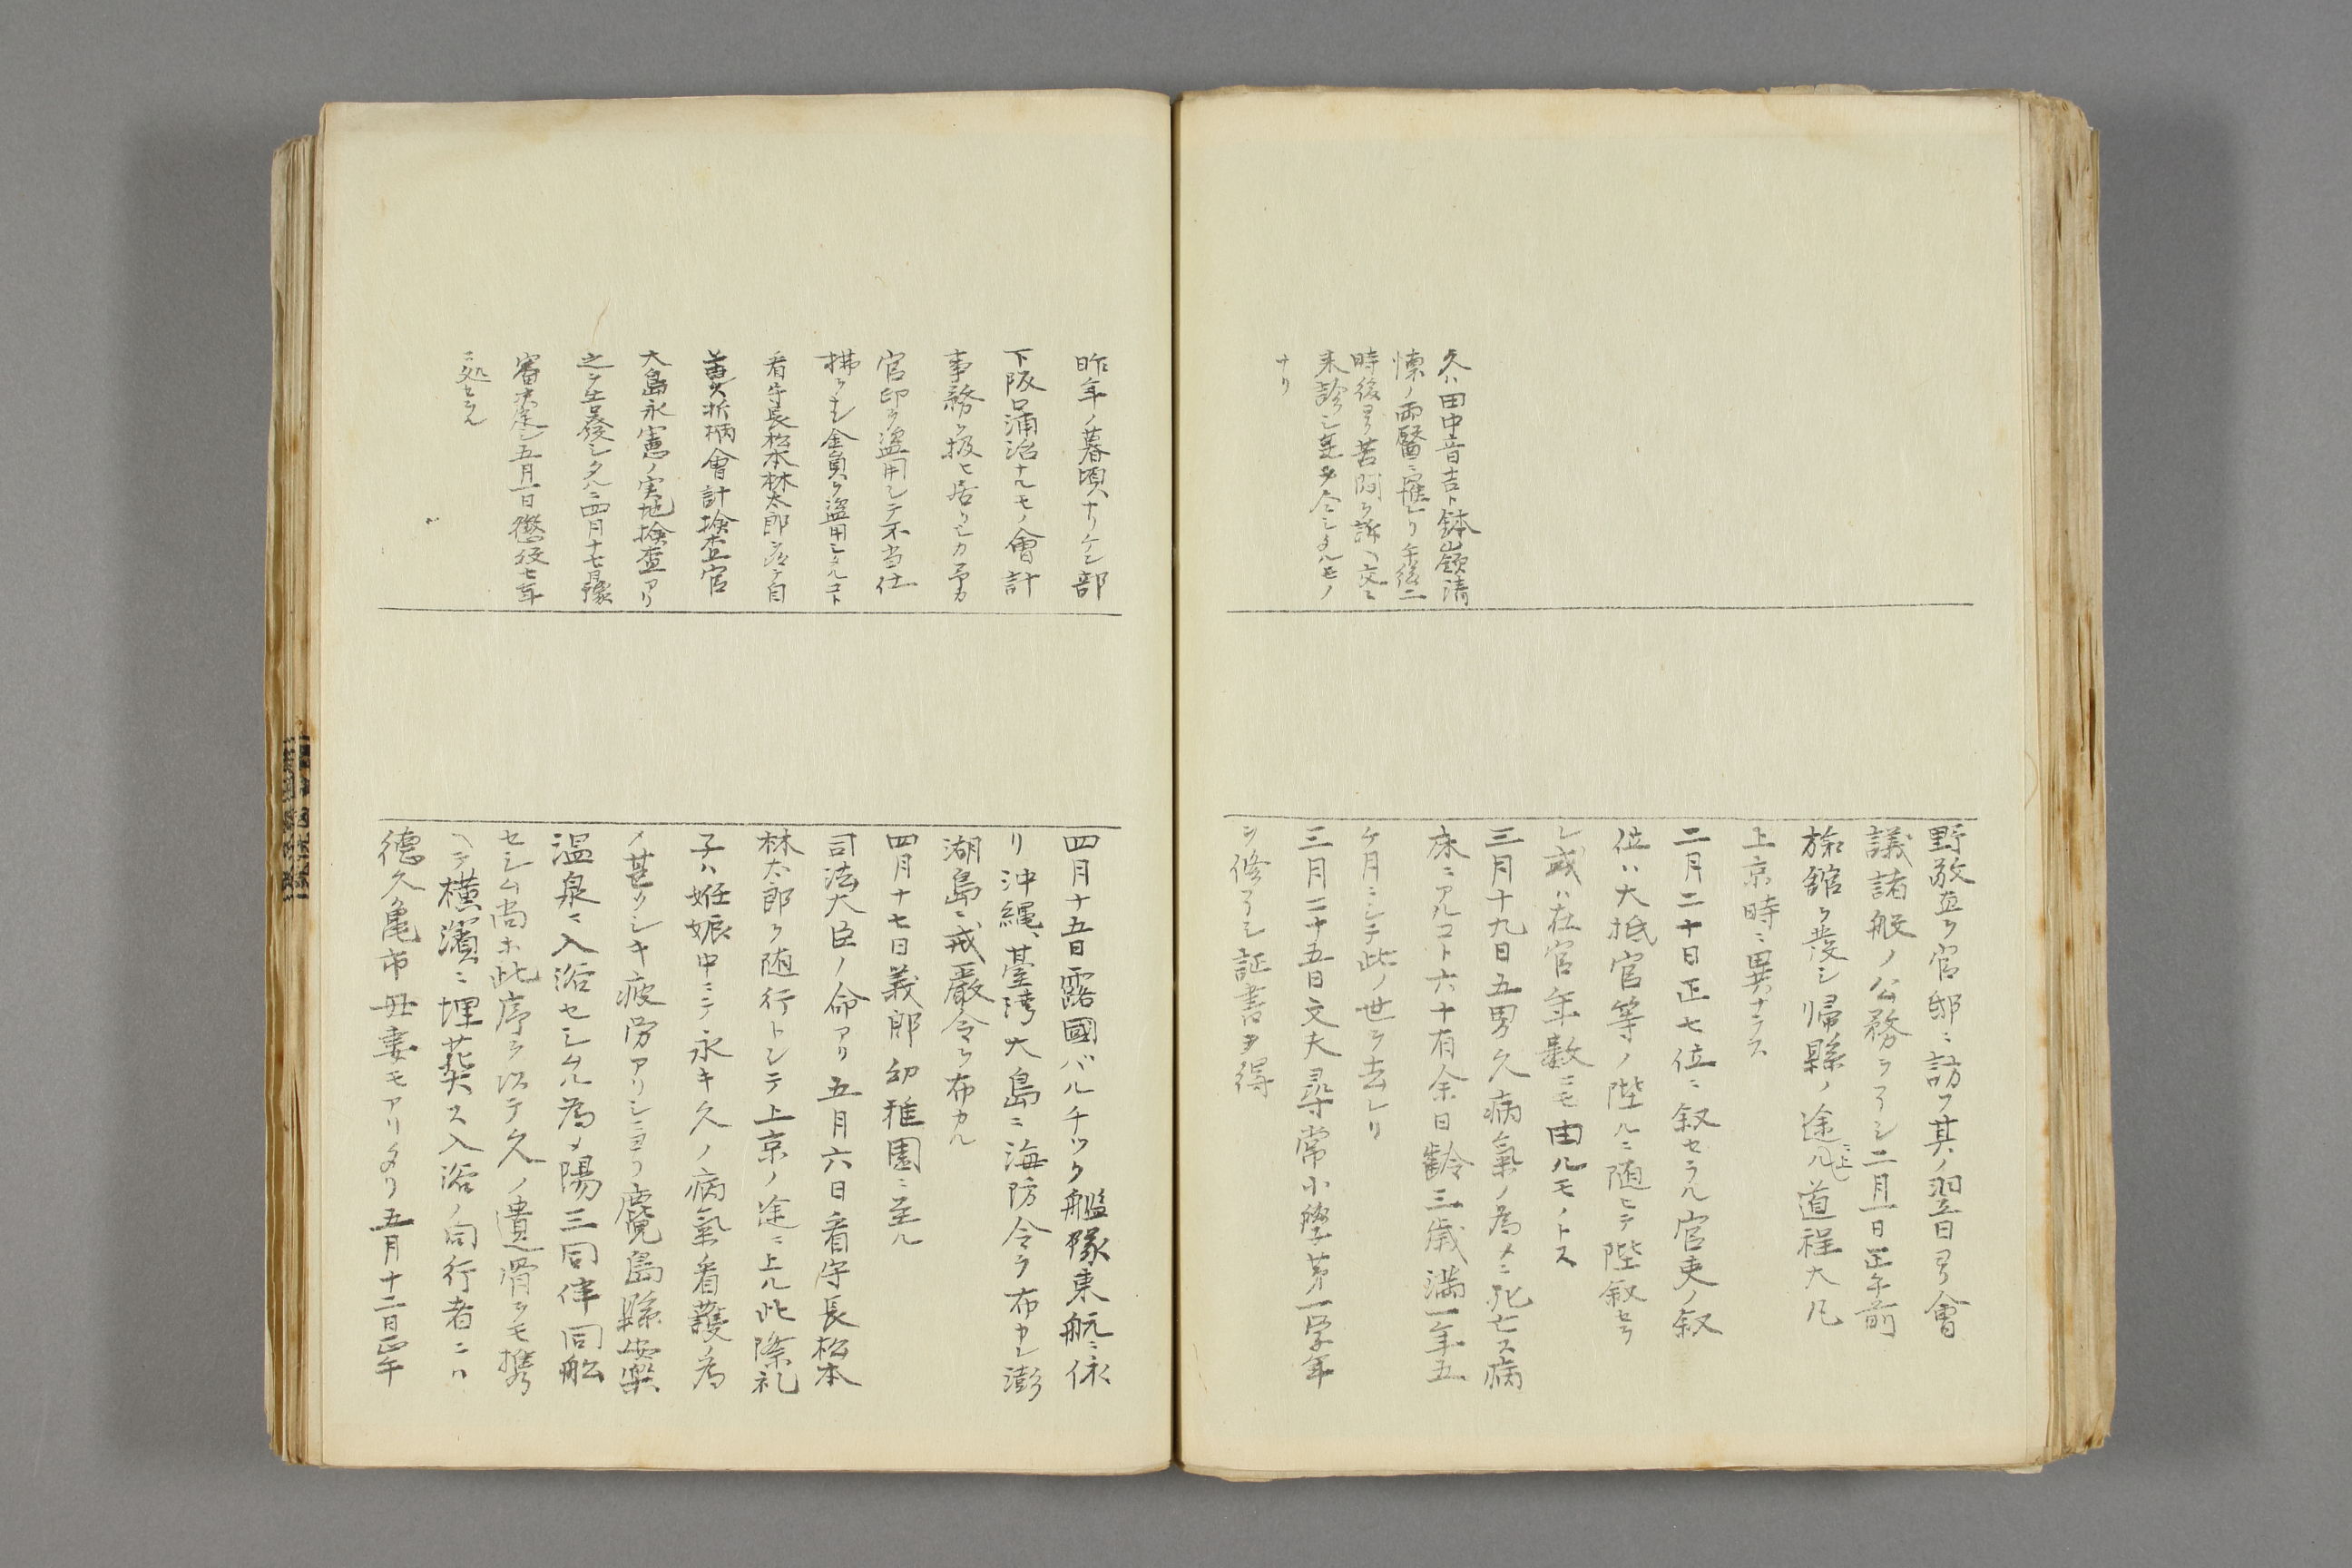 久ハ田中音吉ト鉢嶺清
懐ノ両醫ニ罹レリ午后二
時後ヨリ苦悶ヲ訴ヘ交々
来診シ
ナリ
野敬直ヲ官邸ニ訪フ其ノ翌日ヨリ會
議諸般ノ公務ヲヲヘシ二月一日正午前
旅舘ヲ發シ帰縣ノ途ニ上ル道程大凡
上京時ニ異ナラス
二月二十日正七位ニ叙セラル官吏ノ叙
位ハ大抵官等ノ陞ルニ随ヒテ陞叙セラ
レ或ハ在官年数ニモ由ルモノトス
三月十九日五男久病氣ノ為メニ死亡ス病
床ニアルコト六十有余日齢三歳満一年五
ケ月ニシテ此ノ世ヲ去レリ
三月二十五日文夫尋常小學第一学年
ヲ修了シ証書ヲ得
昨年ノ暮頃ナリケン部
下阪口浦治ナルモノ會計
事務ヲ扱ヒ居リシカ予カ
官印ヲ盗用シテ不当仕
拂ヲナシ金員ヲ盗用シタルコト
看守長松本林太郎
折柄會計検査官
大島永憲ノ実地検査アリ
之ヲ発シタルニ四月十七日豫
審決定シ五月一日懲役七年
ニ処セラル
四月十五日露國バルチック艦隊東航ニ依
リ沖縄、臺湾、大島ニ海防令ヲ布カレ澎
湖島ニ戒嚴令ヲ布カル
四月十七日義郎幼稚園ニ至ル
司法大臣ノ命アリ五月六日看守長松本
林太郎ヲ随行トシテ上京ノ途ニ上ル此際礼
子ハ妊娠中ニテ永キ久ノ病氣ノ看護ノ為
メ甚タシキ疲労アリシニヨリ鹿児島縣安楽
温泉ニ入浴セシムル為メ陽三同伴同船
セシム尚ホ此序ヲ以テ久ノ遺骨ヲモ携
ヘテ横濱ニ埋葬ス入浴ノ同行者ニハ
徳久亀市母妻モアリタリ五月十二日正午